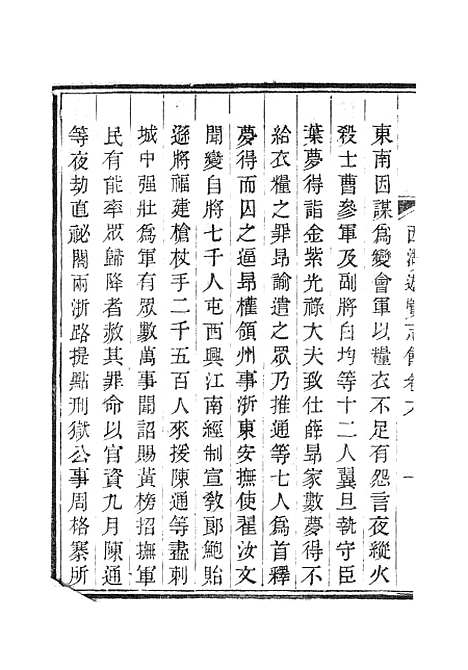 西湖遊覽志餘卷六
東南因謀為變會軍以糧衣不足有怨言夜縱火
殺士曹參軍及副將白均等十二人翼旦執守臣
葉夢得詣金紫光祿大夫致仕薛昂家數夢得不
給衣糧之罪昂諭遣之眾乃推通等七人為首釋
夢得而囚之逼昂權領州事浙東安撫使翟汝文
聞變自將七千人屯西興江南經制宣敎郎鮑貽
遜將福建槍杖手二千五百人來援陳通等盡刺
城中强壯為軍有眾數萬事聞詔賜黃榜招撫軍
民有能率眾歸降者赦其罪命以官資九月陳通
等夜劫直祕閣兩浙路提點刑獄公事周格寨所